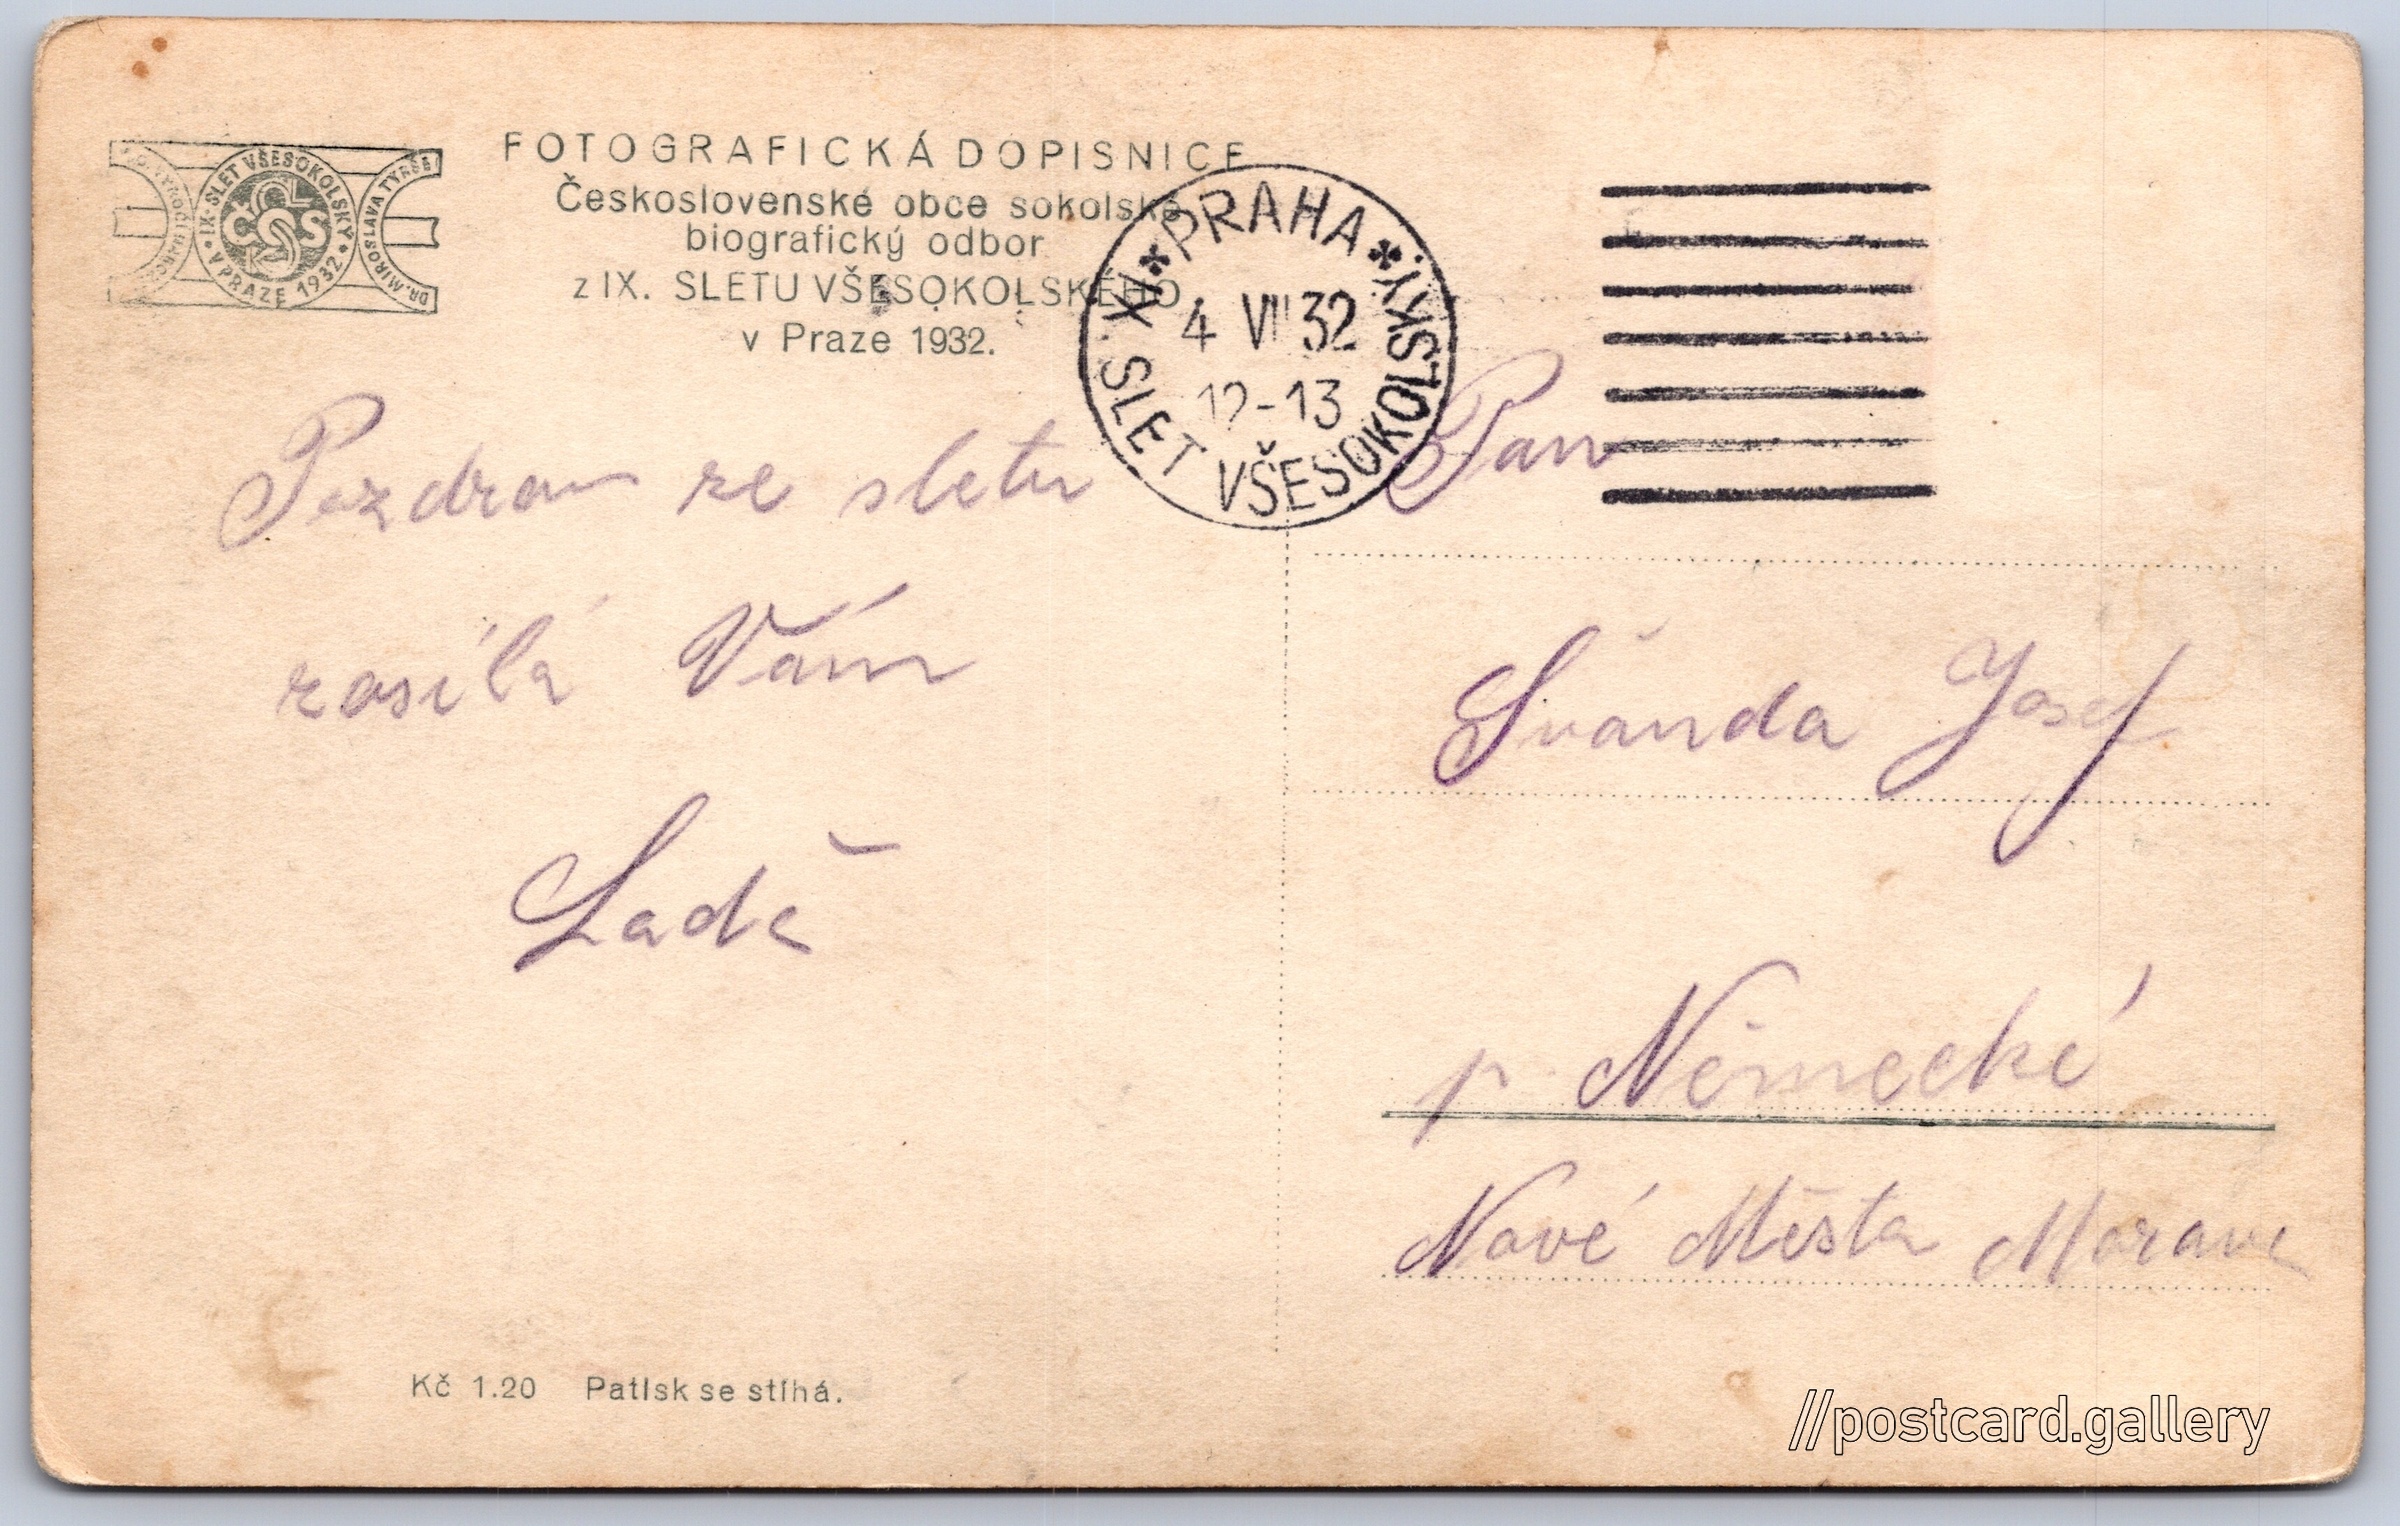 FOTOGRAFICKÁ DOPISNICE
Československé obce sokolské
biografický odbor
z IX. SLETU VŠESOKOLSKÉHO
v Praze 1932.
IX. SLET VŠESOKOLSKÝ
V PRAZE 1932
ČOS
DR. MIROSLAVA TYRŠE
PRAHA
4 VII 32
12-13
IX. SLET VŠESOKOLSKÝ
Pozdrav ze sletu
zasílá Vám
Ladě
Pan
Švanda Josef
p. Německé
Nové Města Morave
Kč 1.20 Patisk se stíhá.
//postcard.gallery